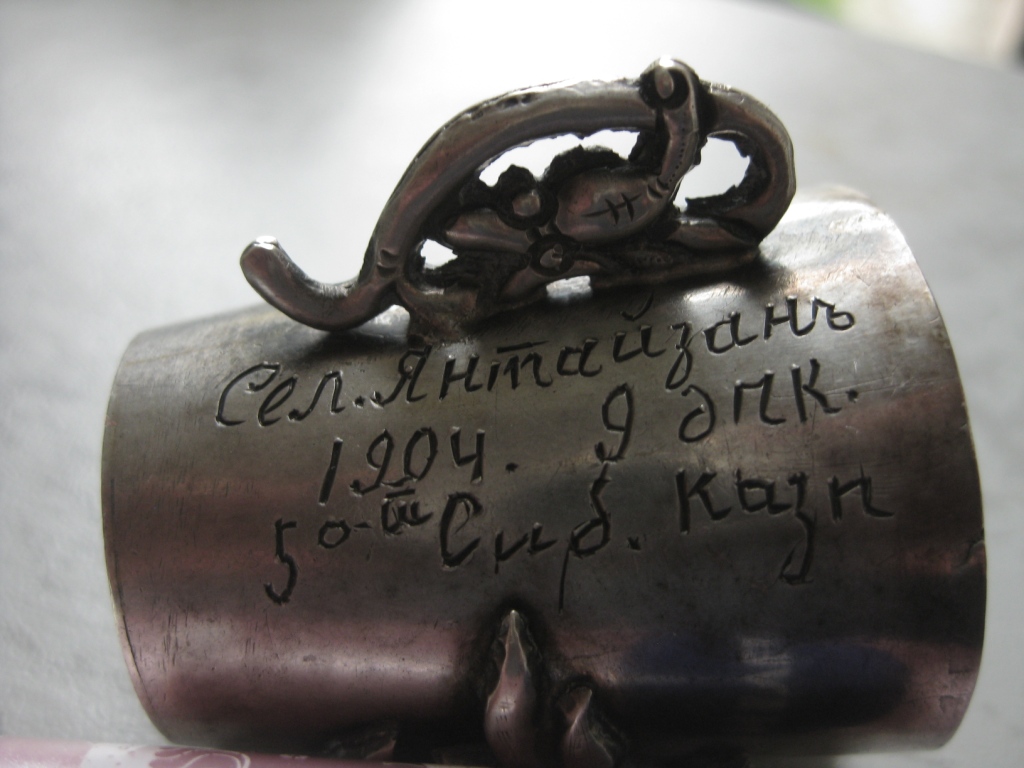 Сел. Янтайзанъ
1904. 9 дпк.
5 о-ш Сиб. Казп